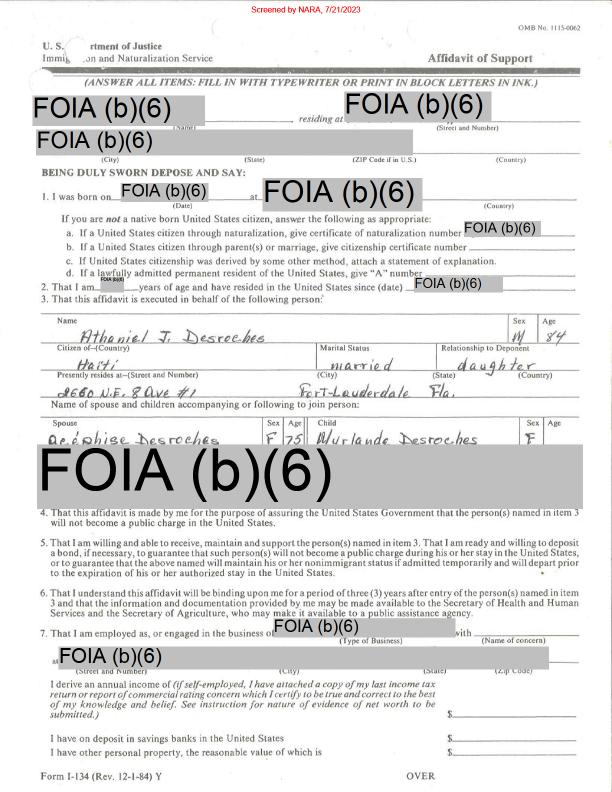 Screened by NARA, 7/21/2023
OMB No. 1115-0062
U. S. rtment of Justice
Immig on and Naturalization Service
Affidavit of Support
(ANSWER ALL ITEMS: FILL IN WITH TYPEWRITER OR PRINT IN BLOCK LETTERS IN INK.)
FOIA (b)(6) residing at FOIA (b)(6)
(Name) (Street and Number)
FOIA (b)(6)
(City) (State) (ZIP Code if in U.S.) (Country)
BEING DULY SWORN DEPOSE AND SAY:
1. I was born on FOIA (b)(6) at FOIA (b)(6)
(Date) (Country)
If you are not a native born United States citizen, answer the following as appropriate:
a. If a United States citizen through naturalization, give certificate of naturalization number FOIA (b)(6)
b. If a United States citizen through parent(s) or marriage, give citizenship certificate number
c. If United States citizenship was derived by some other method, attach a statement of explanation.
d. If a lawfully admitted permanent resident of the United States, give "A" number
2. That I am FOIA (b)(6) years of age and have resided in the United States since (date) FOIA (b)(6)
3. That this affidavit is executed in behalf of the following person:
Name Sex Age
Athaniel J. Desroches M 84
Citizen of--(Country) Marital Status Relationship to Deponent
Haiti married daughter
Presently resides at--(Street and Number) (City) (State) (Country)
2660 N.E. 8 Ave #1 Fort-Lauderdale Fla.
Name of spouse and children accompanying or following to join person:
Spouse Sex Age Child Sex Age
Desroches F 75 Murlande Desroches F
FOIA (b)(6)
4. That this affidavit is made by me for the purpose of assuring the United States Government that the person(s) named in item 3
will not become a public charge in the United States.
5. That I am willing and able to receive, maintain and support the person(s) named in item 3. That I am ready and willing to deposit
a bond, if necessary, to guarantee that such person(s) will not become a public charge during his or her stay in the United States,
or to guarantee that the above named will maintain his or her nonimmigrant status if admitted temporarily and will depart prior
to the expiration of his or her authorized stay in the United States.
6. That I understand this affidavit will be binding upon me for a period of three (3) years after entry of the person(s) named in item
3 and that the information and documentation provided by me may be made available to the Secretary of Health and Human
Services and the Secretary of Agriculture, who may make it available to a public assistance agency.
7. That I am employed as, or engaged in the business of FOIA (b)(6) with
(Type of Business) (Name of concern)
at FOIA (b)(6)
(Street and Number) (City) (State) (Zip Code)
I derive an annual income of (if self-employed, I have attached a copy of my last income tax
return or report of commercial rating concern which I certify to be true and correct to the best
of my knowledge and belief. See instruction for nature of evidence of net worth to be
submitted.) $
I have on deposit in savings banks in the United States $
I have other personal property, the reasonable value of which is $
Form I-134 (Rev. 12-1-84) Y OVER